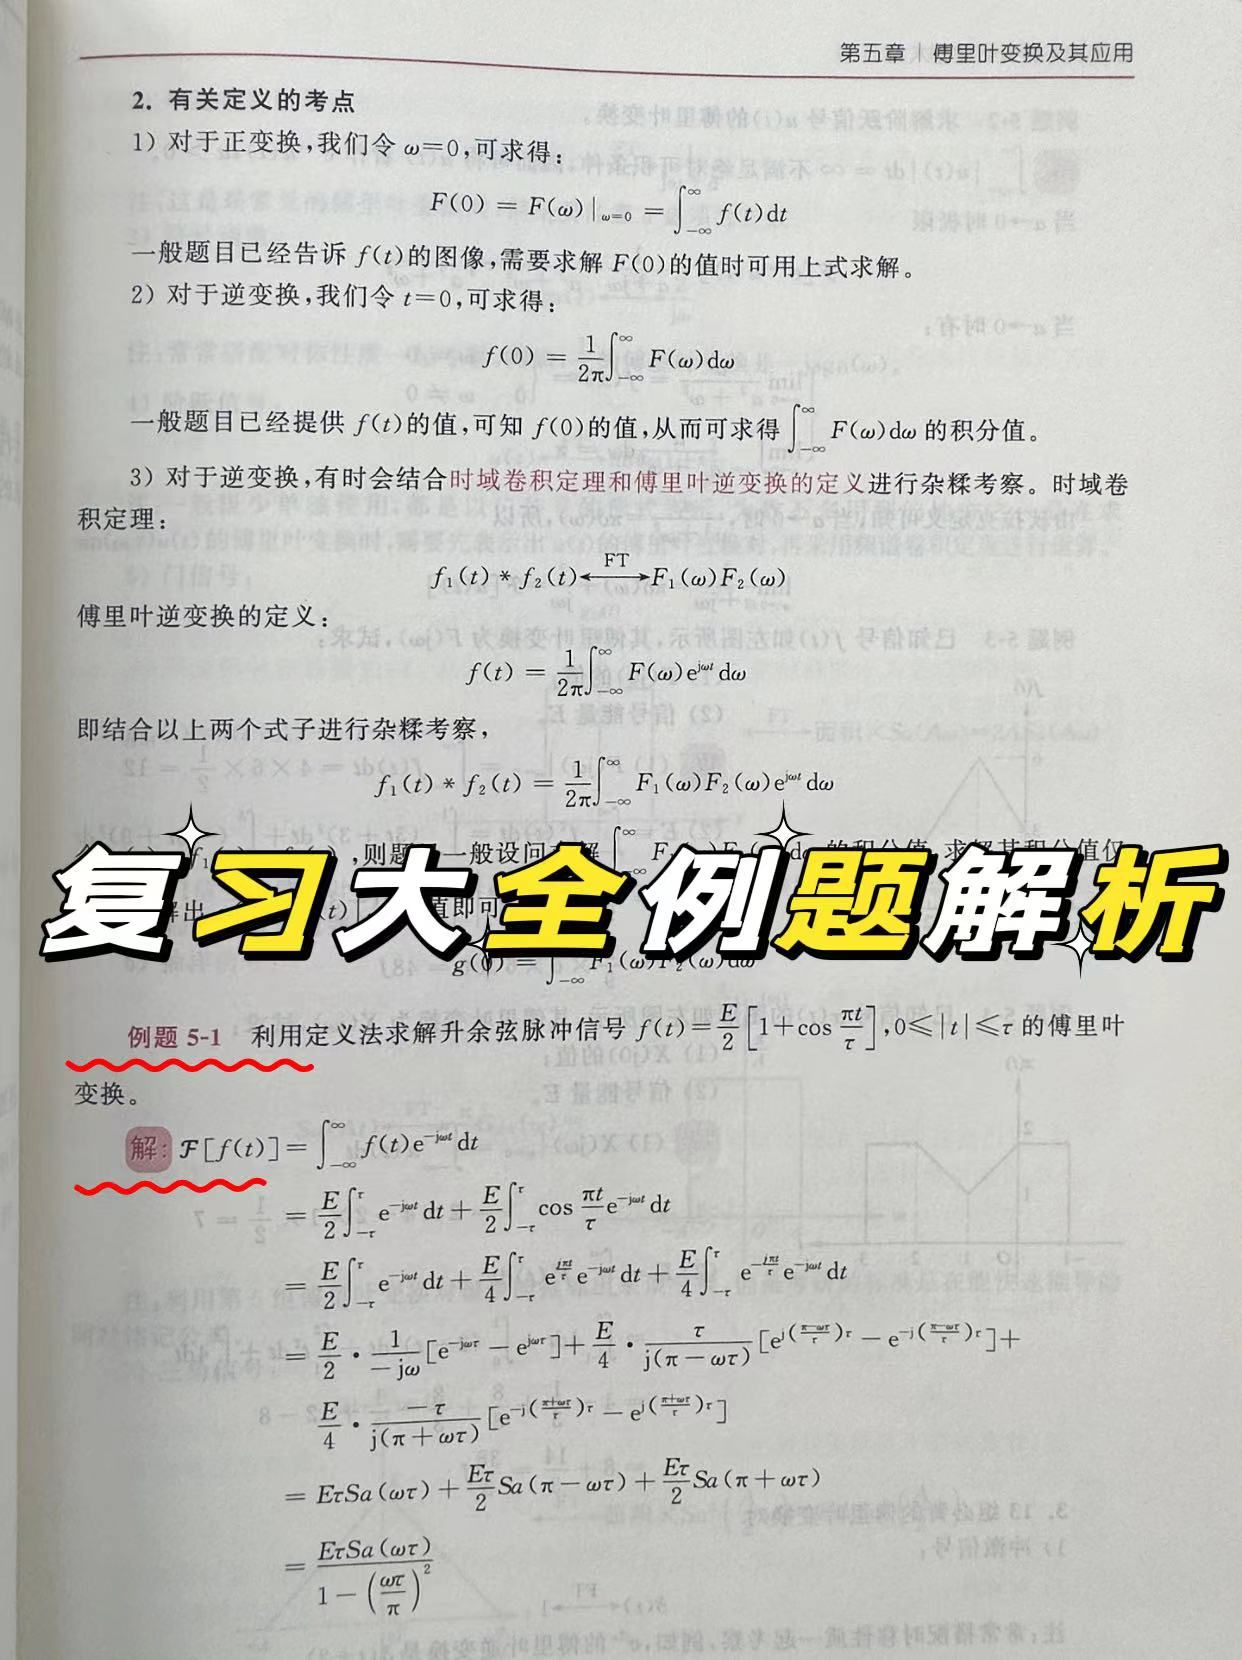 第五章 | 傅里叶变换及其应用
2. 有关定义的考点
1) 对于正变换,我们令 ω=0,可求得:
F(0) = F(ω)|_{ω=0} = ∫_{-∞}^{∞} f(t)dt
一般题目已经告诉 f(t)的图像,需要求解 F(0)的值时可用上式求解。
2) 对于逆变换,我们令 t=0,可求得:
f(0) = \frac{1}{2π}∫_{-∞}^{∞} F(ω)dω
一般题目已经提供 f(t)的值,可知 f(0)的值,从而可求得∫_{-∞}^{∞} F(ω)dω 的积分值。
3) 对于逆变换,有时会结合时域卷积定理和傅里叶逆变换的定义进行杂糅考察。时域卷
积定理:
f₁(t) * f₂(t) ←FT→ F₁(ω)F₂(ω)
傅里叶逆变换的定义:
f(t) = \frac{1}{2π}∫_{-∞}^{∞} F(ω)e^{jωt} dω
即结合以上两个式子进行杂糅考察,
f₁(t) * f₂(t) = \frac{1}{2π}∫_{-∞}^{∞} F₁(ω)F₂(ω)e^{jωt} dω
,则题 一般设问
复习大全例题解析
值即可
g(0) = ∫_{-∞} F₁(ω)F₂(ω)dω
例题 5-1 利用定义法求解升余弦脉冲信号 f(t)=\frac{E}{2}[1+cos \frac{πt}{τ}],0≤|t|≤τ 的傅里叶
变换。
解: ℱ[f(t)] = ∫_{-∞}^{∞} f(t)e^{-jωt} dt
= \frac{E}{2}∫_{-τ}^{τ} e^{-jωt} dt + \frac{E}{2}∫_{-τ}^{τ} cos \frac{πt}{τ} e^{-jωt} dt
= \frac{E}{2}∫_{-τ}^{τ} e^{-jωt} dt + \frac{E}{4}∫_{-τ}^{τ} e^{\frac{jπt}{τ}} e^{-jωt} dt + \frac{E}{4}∫_{-τ}^{τ} e^{-\frac{jπt}{τ}} e^{-jωt} dt
= \frac{E}{2} · \frac{1}{-jω}[e^{-jωτ} - e^{jωτ}] + \frac{E}{4} · \frac{τ}{j(π-ωτ)}[e^{j(\frac{π-ωτ}{τ})τ} - e^{-j(\frac{π-ωτ}{τ})τ}] +
\frac{E}{4} · \frac{-τ}{j(π+ωτ)}[e^{-j(\frac{π+ωτ}{τ})τ} - e^{j(\frac{π+ωτ}{τ})τ}]
= EτSa(ωτ) + \frac{Eτ}{2}Sa(π-ωτ) + \frac{Eτ}{2}Sa(π+ωτ)
= \frac{EτSa(ωτ)}{1-(\frac{ωτ}{π})^2}